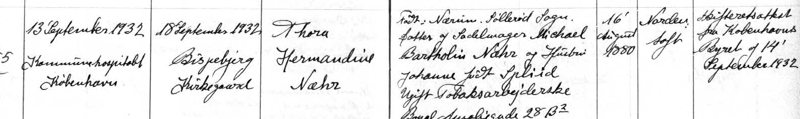 13 September 1932
Kommunehospitalet
København
18 September 1932
Bispebjerg
Kirkegaard
Thora
Hermandine
Næhr
Født: Nærum. Søllerød Sogn.
Datter af Sadelmager Michael
Bartholin Næhr og Hustru
Johanne født Spliid
Ugift Tobaksarbejderske
28 B 3
16'
August
1880
Skifteretsattest
fra Københavns
Byret af 14'
September 1932
5